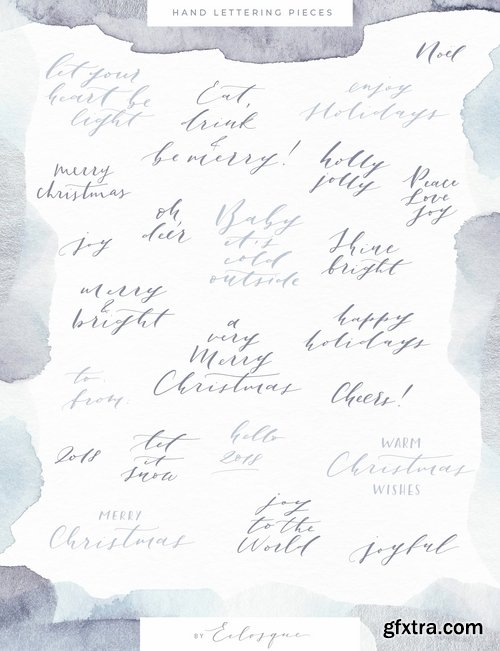 HAND LETTERING PIECES
Noel
let your
heart be
light
Eat,
drink
&
be merry!
enjoy
Holidays
merry
christmas
holly
jolly
Peace
Love
Joy
joy
oh,
deer
Baby
it's
cold
outside
Shine
bright
merry
&
bright
a
very
Merry
Christmas
happy
holidays
to:
from:
Cheers!
2018
let
it
snow
hello
2018
WARM
Christmas
WISHES
MERRY
Christmas
joy
to the
World
joyful
BY Eclosque
gfxtra.com